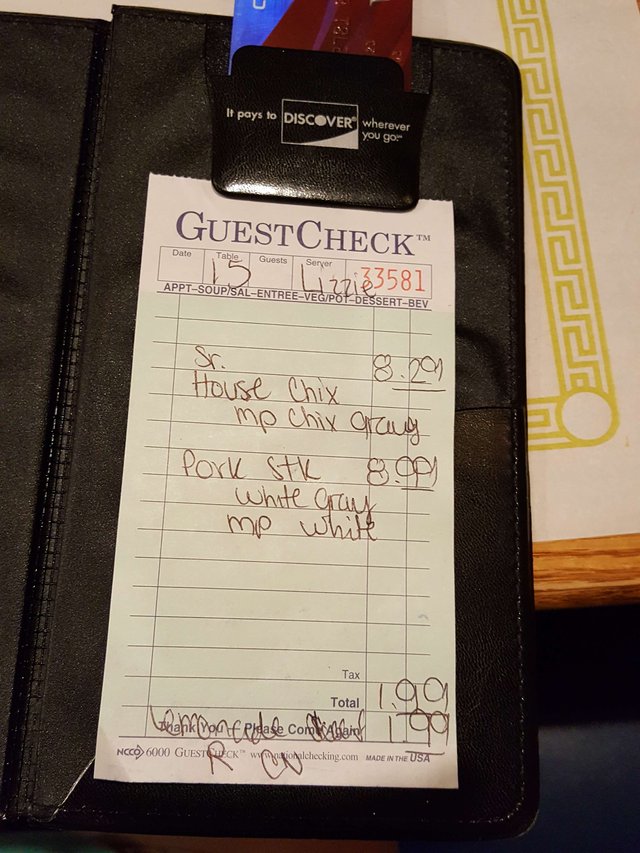 It pays to DISCOVER® wherever you go.℠
GUESTCHECK™
Date Table Guests Server
15 Lizzie 33581
APPT-SOUP/SAL-ENTREE-VEG/POT-DESSERT-BEV
Sr. 8.29
House Chix
mp Chix gravy
Pork Stk 8.99
white gray
mp white
Tax
Total 1.99
Thank You - Please Come Again 1.99
R W
NCCO 6000 GUESTCHECK™ www.nationalchecking.com MADE IN THE USA